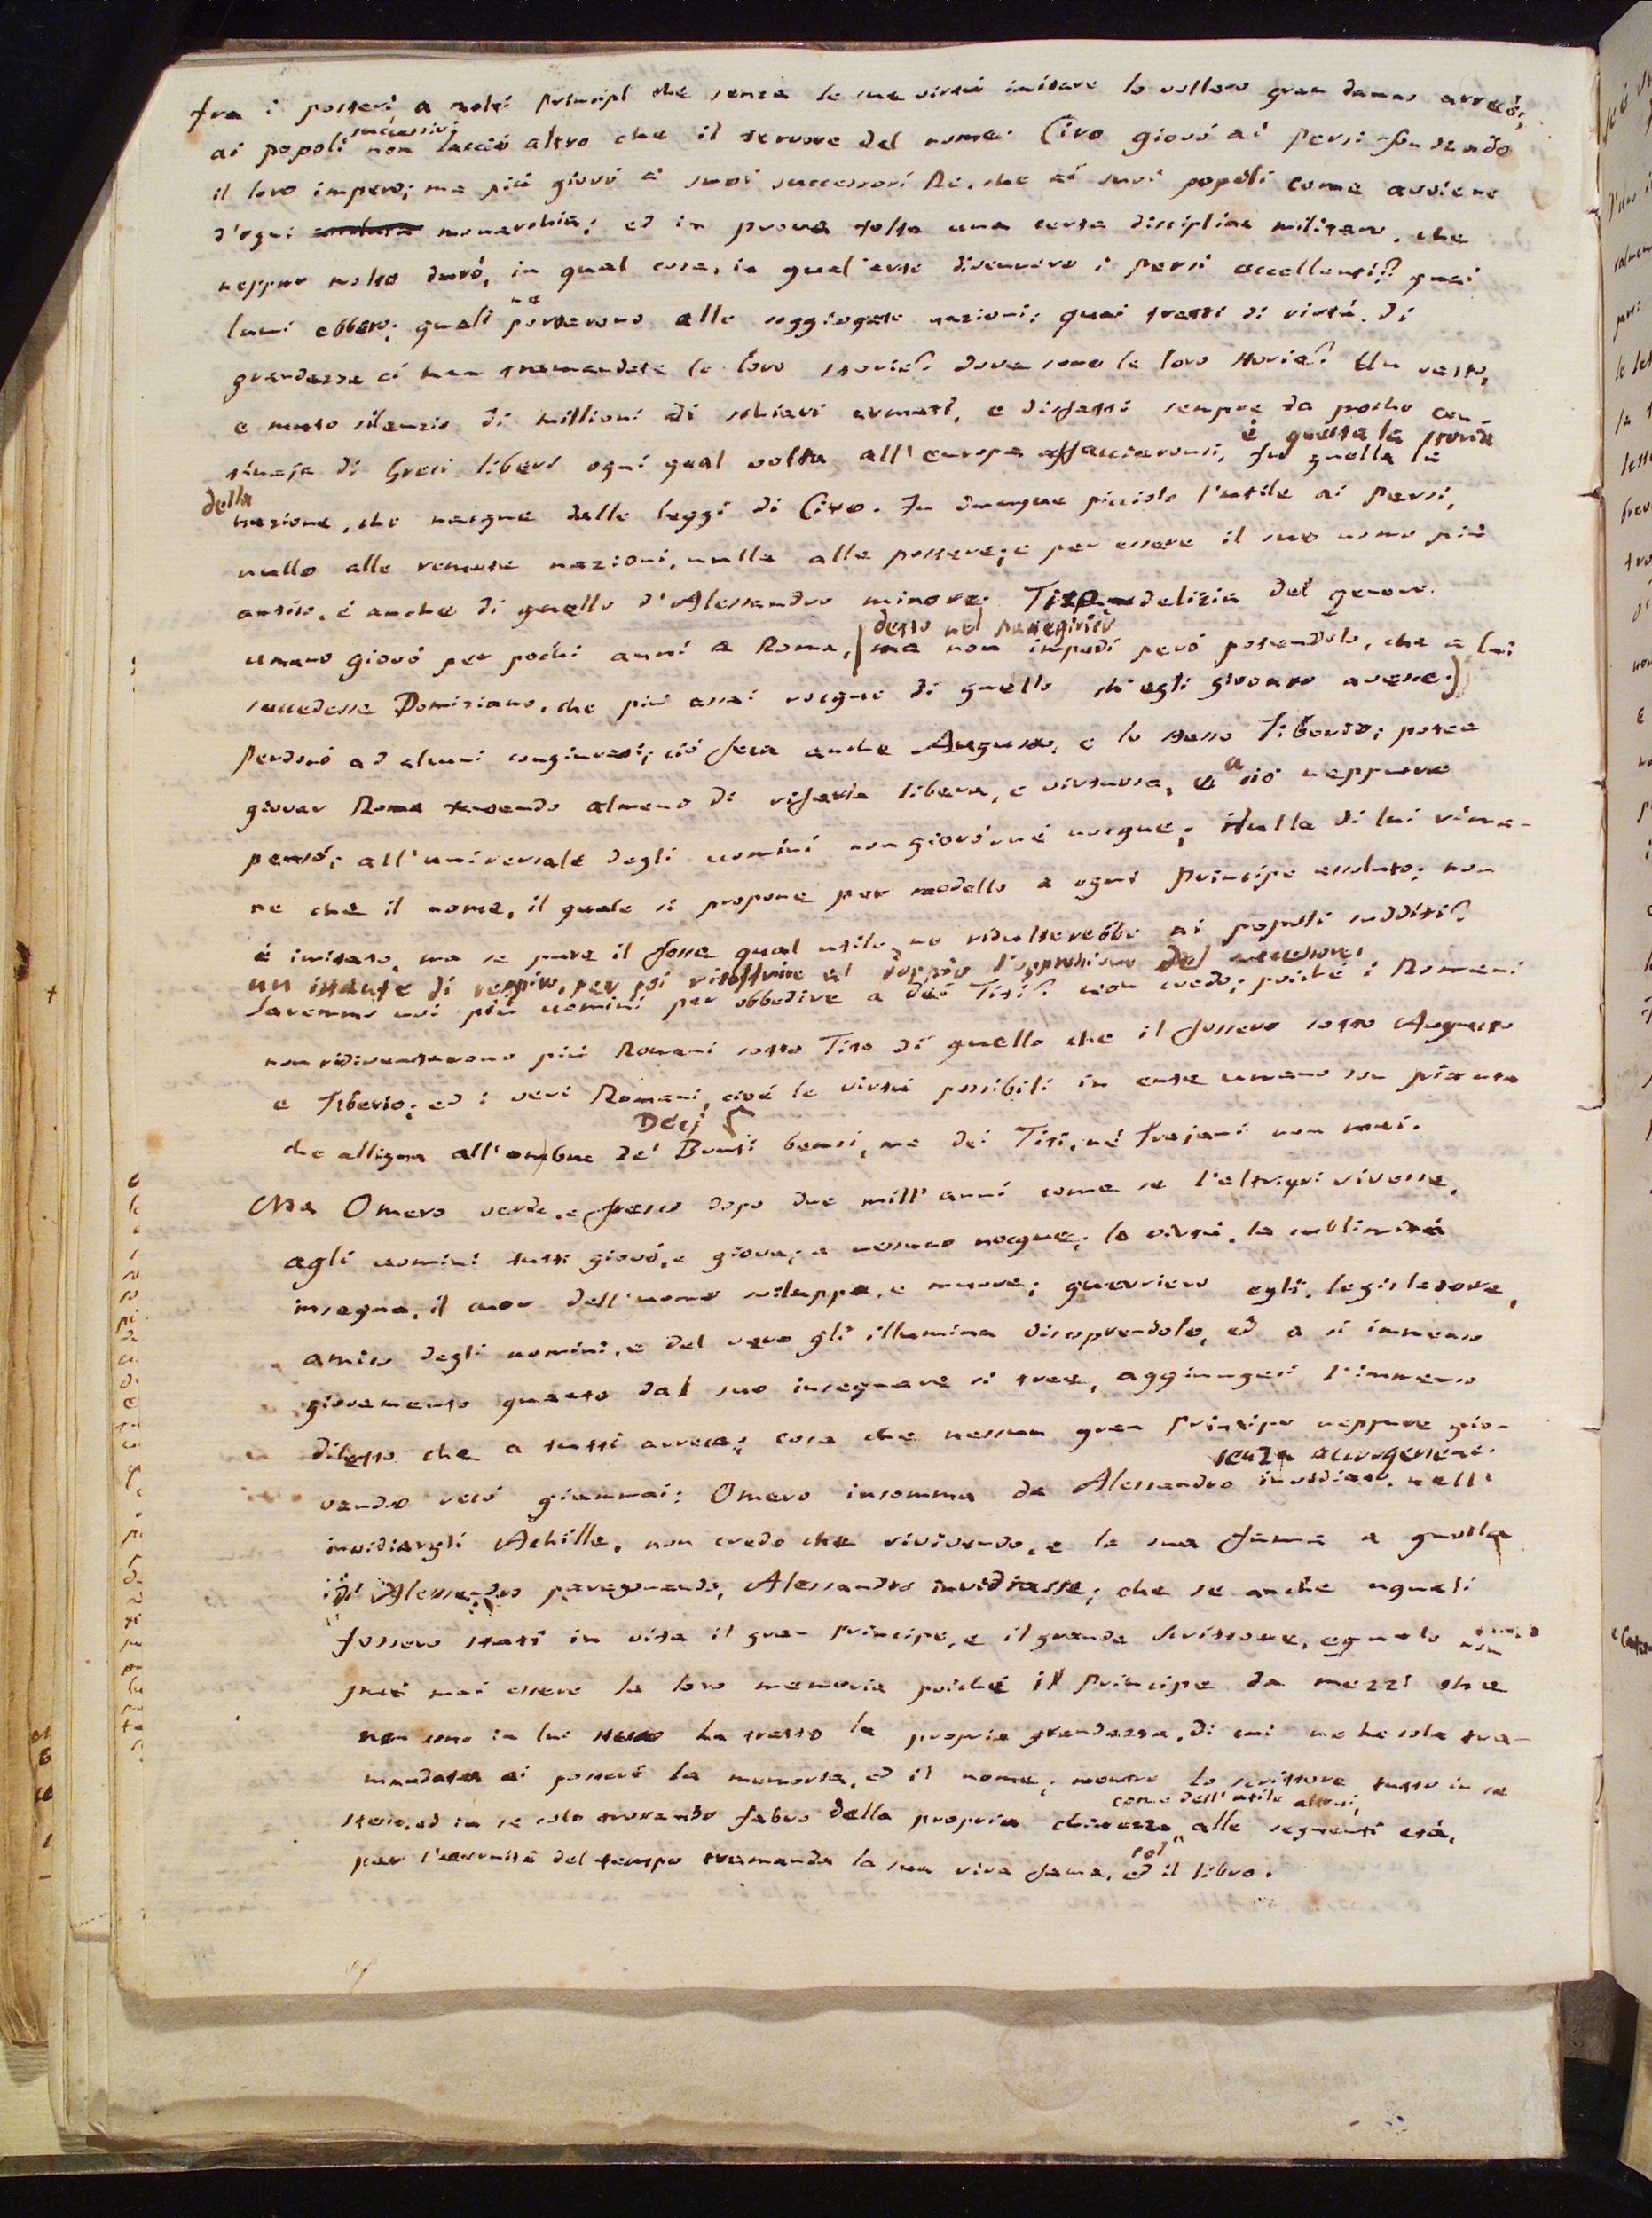 fra i posteri a molti Principi che senza le sue virtù imitare lo vollero gran danno arrecò;
successivi
ai popoli non lasciò altro che il terrore del nome. Ciro giovò ai Persi fondando
il loro impero; ma più giovò ai suoi successori Re, che ai suoi popoli come avviene
d'ogni monarchia; ed in prova tolta una certa disciplina militare, che
neppur molto durò, in qual cosa, in qual'arte divennero i Persi eccellenti? quai
ne
lumi ebbero; quali portarono alle soggiogate nazioni; quai tratti di virtù, di
grandezza ci han tramandate le loro storie? dove sono le loro storie? Un vasto,
e muto silenzio di millioni di schiavi armati, e disfatti sempre da poche cen-
è questa la storia
tinaja di Greci liberi ogni qual volta all'europa affacciaronsi, fu quella la
della
nazione, che nacque dalle leggi di Ciro. Fu dunque picciolo l'utile ai Persi,
nullo alle remote nazioni, nullo alle postere; e per essere il suo nome più
antico, è anche di quello d'Alessandro minore. Tito delizia del genere
detto nel panegirico
umano giovò per pochi anni a Roma, (ma non impedì però potendolo, che a lui
succedesse Domiziano, che più assai nocque di quello ch'egli giovato avesse.)
Perdonò ad alcuni congiurati; ciò fece anche Augusto, e lo stesso Tiberio; potea
a
giovar Roma tentando almeno di rifarla libera, e virtuosa, e ciò neppure
pensò; all'universale degli uomini non giovò, né nocque; Nulla di lui rima-
ne che il nome, il quale si propone per modello a ogni Principe assoluto; non
è imitato, ma se pure il fosse qual utile ne risulterebbe ai popoli sudditi?
un istante di respiro, per poi risoffrire al doppio l'oppressione del successore,
saremmo noi più uomini per obbedire a dei Titi? non credo; poiché i Romani
non ridiventarono più Romani sotto Tito di quello che il fossero sotto Augusto
e Tiberio; ed i veri Romani, cioè le virtù possibili in ente umano son pianta
Decj
che alligna all'ombra de' Bruti bensì, ma dei Titi, né Trajani non mai.
Ma Omero verde, e fresco dopo due mill'anni come se l'altrieri vivesse,
agli uomini tutti giovò, e giova; a nessuno nocque; la virtù, la sublimità
insegna, il cuor dell'uomo sviluppa, e muove; guerriero egli, legislatore,
amico degli uomini, e del vero gli illumina discoprendolo, ed a sì immenso
giovamento quanto dal suo insegnare si trae, aggiungesi l'immenso
diletto che a tutti arreca; cosa che nessun gran Principe neppure gio-
senza accorgersene
vando recò giammai: Omero insomma da Alessandro invidiato, nell'
invidiargli Achille, non credo che rivivendo, e la sua fama a quella
di Alessandro paragonando, Alessandro invidiasse; che se anche uguali
fossero stati in vita il gran Principe, e il grande Scrittore, eguale non
può mai essere la loro memoria poiché il Principe da mezzi che
non sono in lui stesso ha tratto la propria grandezza, di cui ne ha sola tra-
mandata ai posteri la memoria, ed il nome; mentre lo scrittore tutto in se
come dell'utile altrui,
stesso, ed in se solo trovando fabro della propria chiarezza alle seguenti età,
sol
per l'eternità del tempo tramanda la sua viva fama, ed il libro.